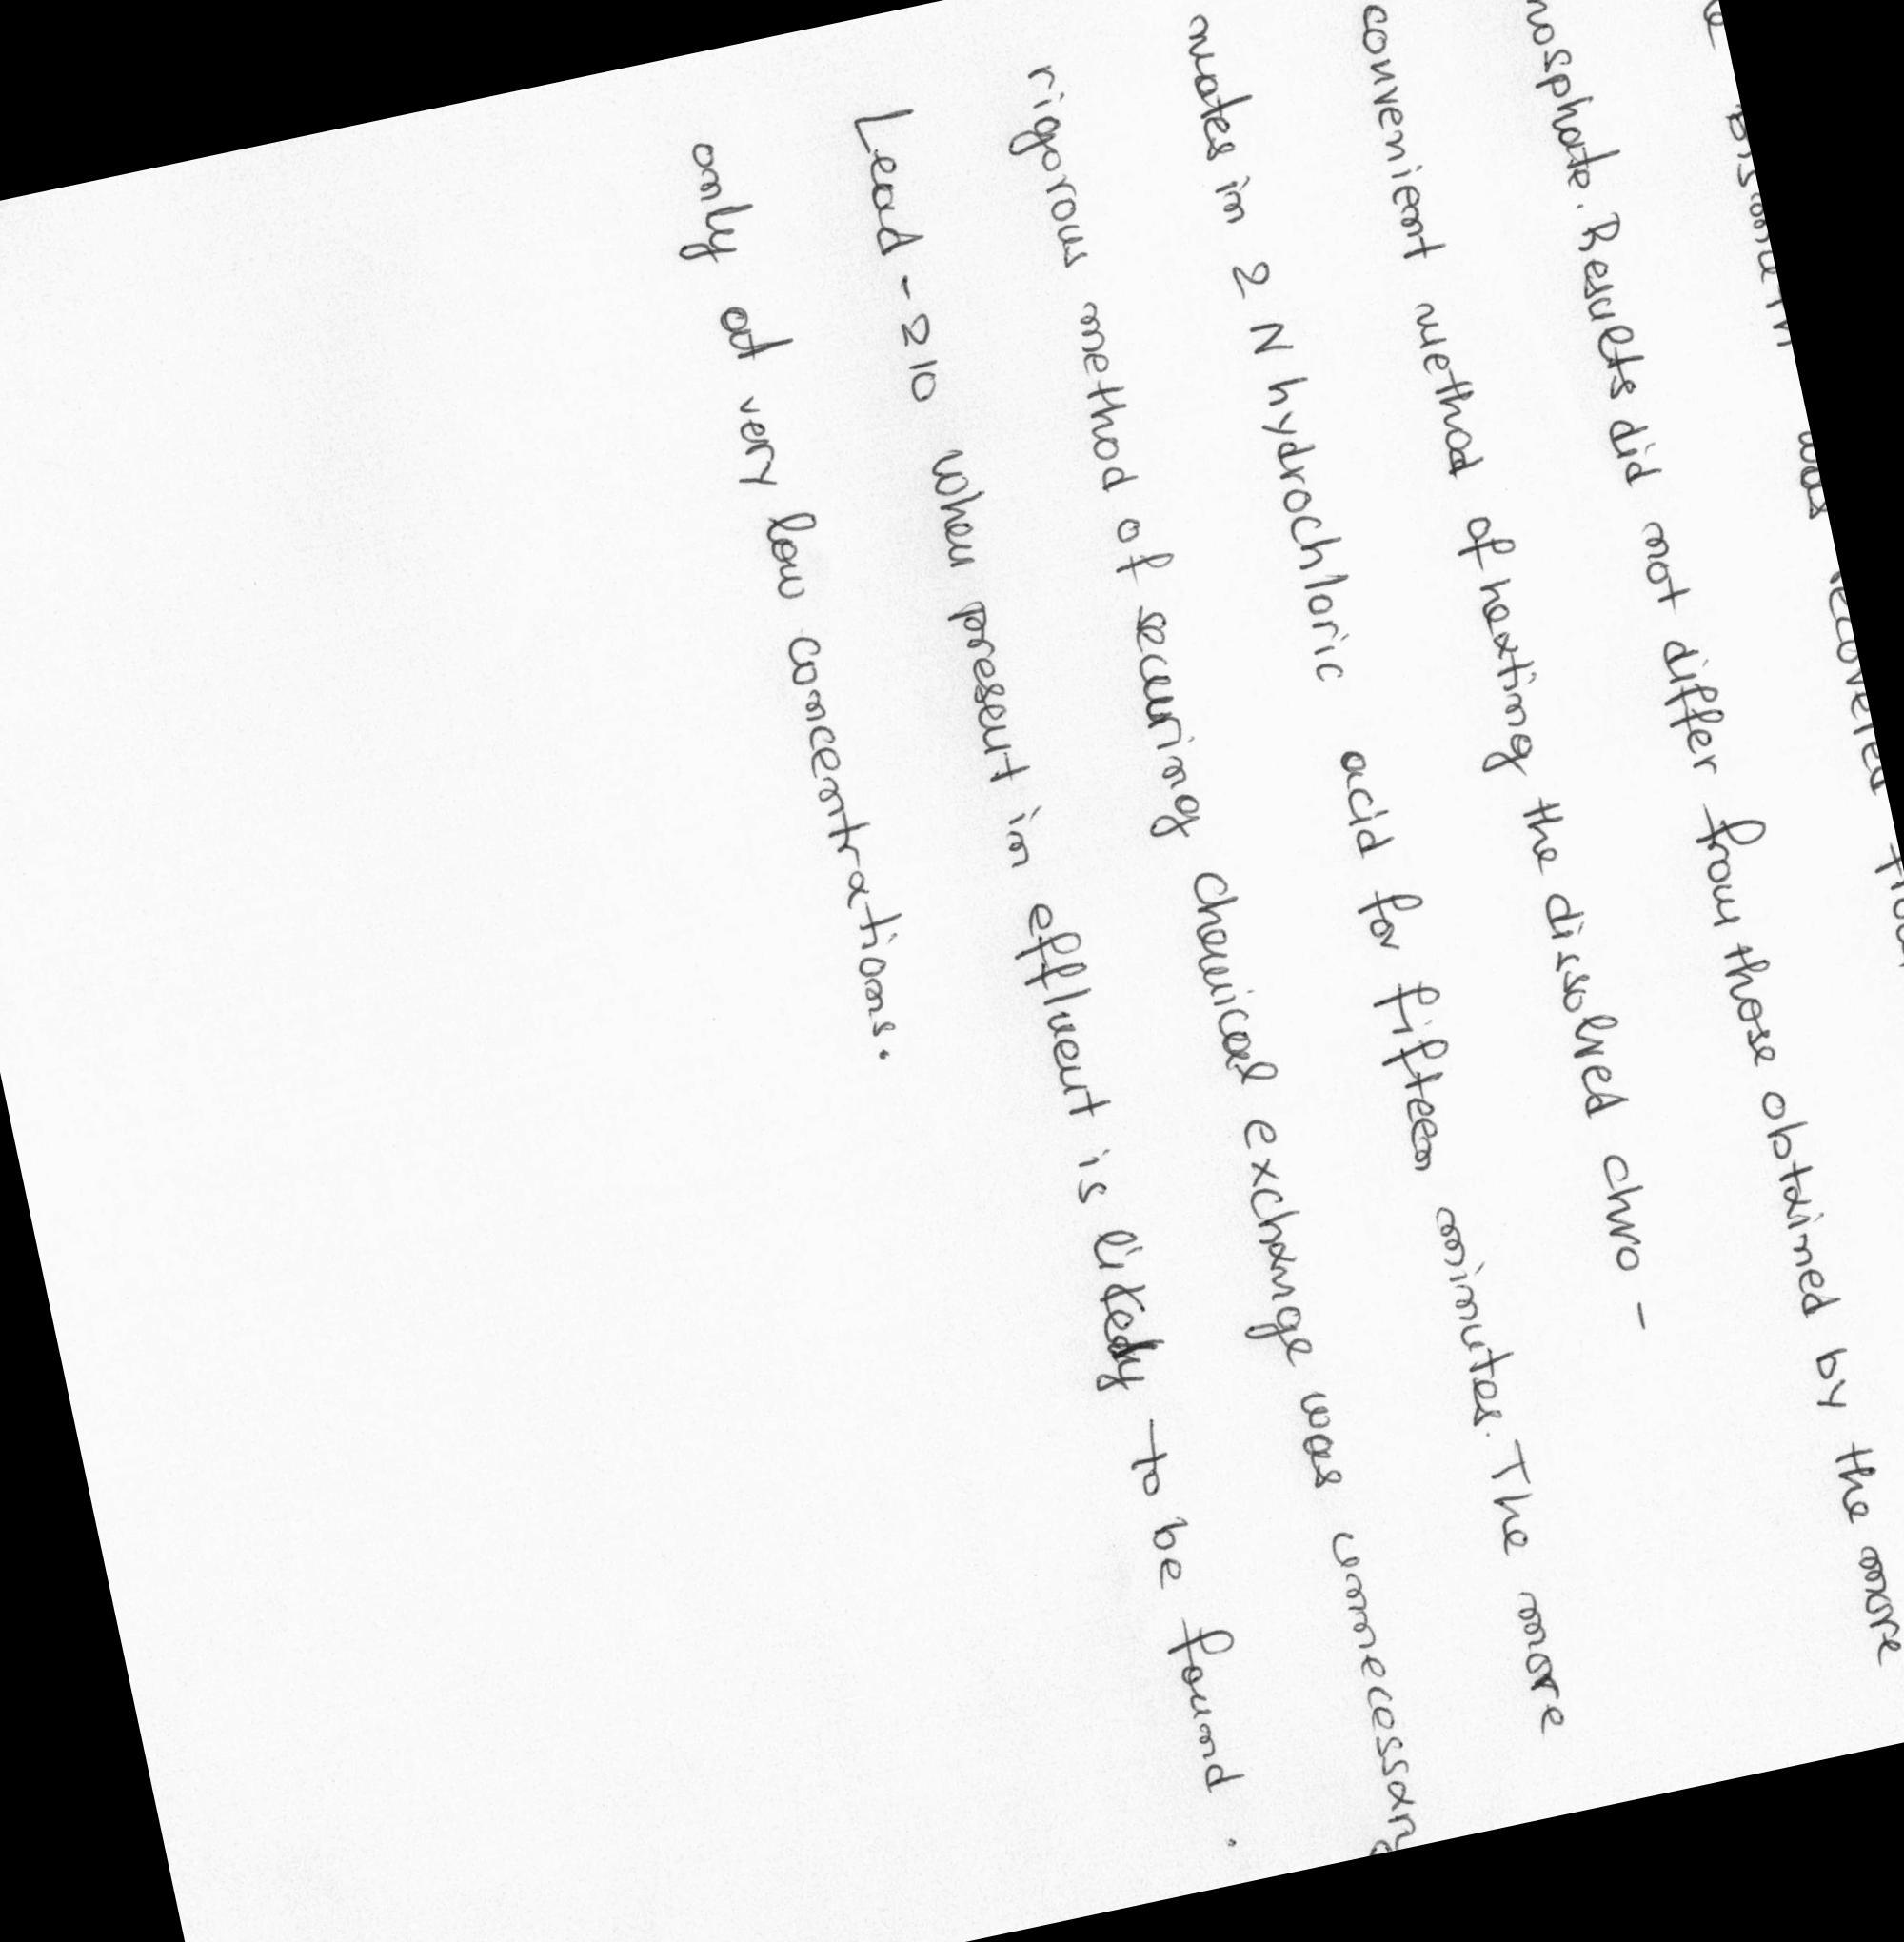 was recovered
hosphate. Results did not differ from those obtained by the more
convenient method of heating the dissolved chro -
mates in 2 N hydrochloric acid for fifteen minutes. The more
rigorous method of securing chemical exchange was unnecessary
Lead - 210 when present in effluent is likely to be found .
only at very low concentrations.